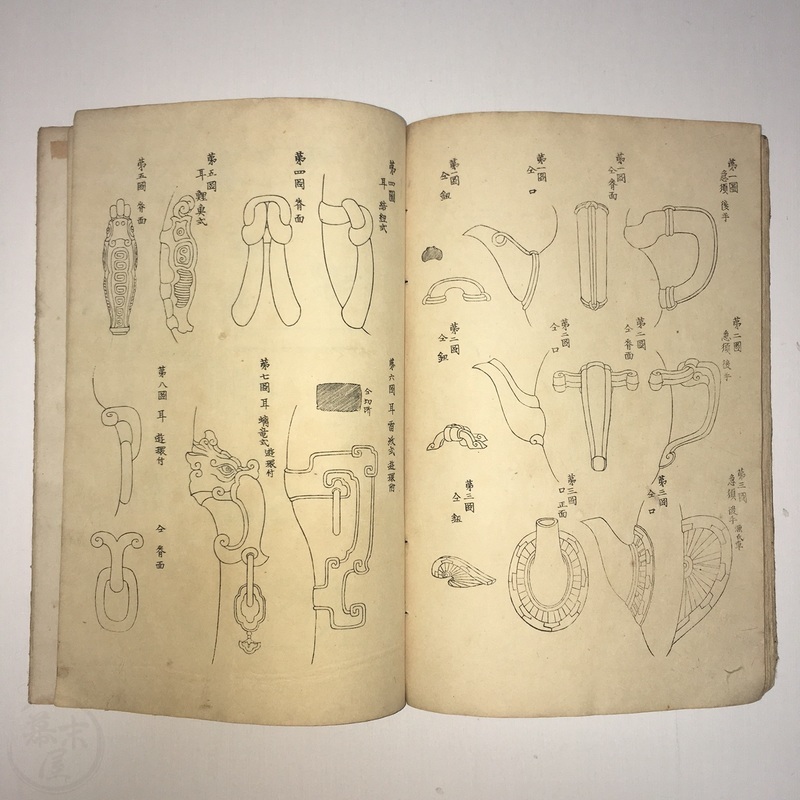 第一圖
急須 後手
第一圖
仝 脊面
第一圖
仝 口
第一圖
仝 鈕
第二圖
急須 後手
第二圖
仝 脊面
第二圖
仝 口
第二圖
仝 鈕
第三圖
急須 後手
第三圖
仝 口
第三圖
口 正面
第三圖
仝 鈕
第四圖
第四圖 脊面
第五圖
第五圖 脊面
第六圖 耳 雷紋式 遊環付
仝切所
第七圖 耳 螭竜式 遊環付
第八圖 耳 遊環付
仝 脊面
幕末屋